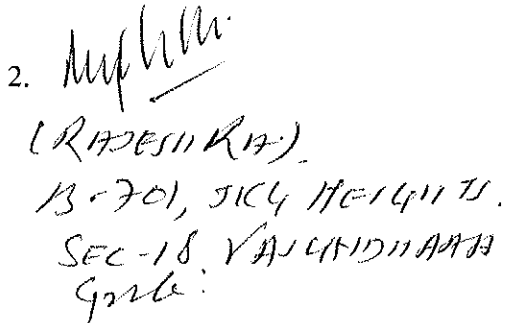 2.
(RAJESH RAI)
B-701, JKG HEIGHTS.
SEC-18 VASUNDHARA